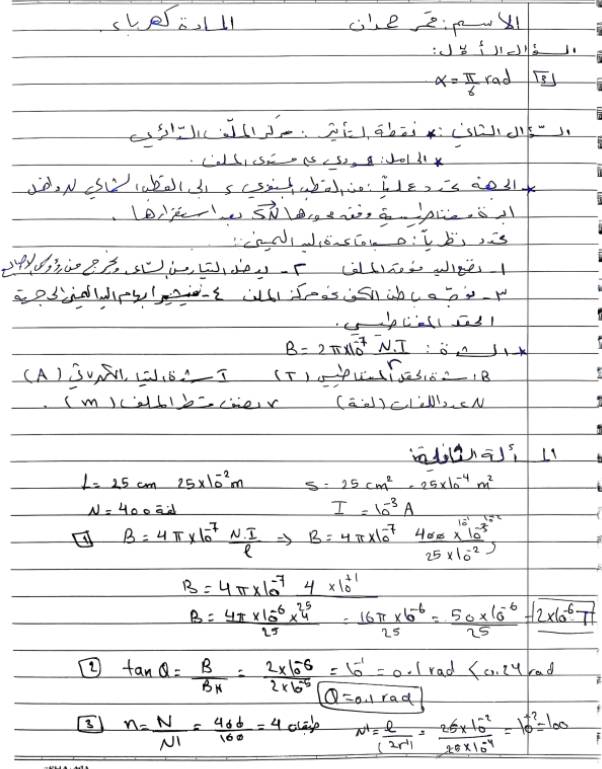 الاسم: قمر حمدان المادة كهرباء.
السؤال الأول:
3 α = π/6 rad
السؤال الثاني: * نقطة التأثير: مركز الملف الدائري
* الحامل: عمودي على مستوى الملف.
* الجهة تحدد عملياً: من القطب الجنوبي s إلى القطب الشمالي N داخل
ابرة مغناطيسية وفق محورها SN بعد استقرارها.
تحدد نظرياً: حسب قاعدة اليد اليمنى:
1- نضع اليد فوق الملف 2- يدخل التيار من الساعد ويخرج من رؤوس الأصابع
3- نوجه باطن الكف نحو مركز الملف 4- فيشير ابهام اليد اليمنى إلى جهة
الحقل المغناطيسي.
* الشدة: B = 2π×10^-7 N.I/r
B: شدة الحقل المغناطيسي (T) I شدة التيار الكهربائي (A)
N عدد اللفات (لفة) r نصف قطر الملف (m).
المسألة الثانية:
L = 25 cm 25×10^-2 m S = 25 cm² = 25×10^-4 m²
N = 400 لفة I = 10^-3 A
1 B = 4π×10^-7 N.I/l ⇒ B = 4π×10^-7 400×10^-3/25×10^-2
B = 4π×10^-7 4 ×10^+1
B = 4π×10^-6×4/25 = 16π×10^-6/25 = 50×10^-6/25 = 2×10^-6 T
2 tan Q = B/BH = 2×10^-6/2×10^-5 = 10^-1 = 0.1 rad < 0.24 rad
Q = 0.1 rad
3 n = N/N' = 400/100 = 4 طبقات N' = l/(2r') = 25×10^-2/25×10^-4 = 10^+2 = 100